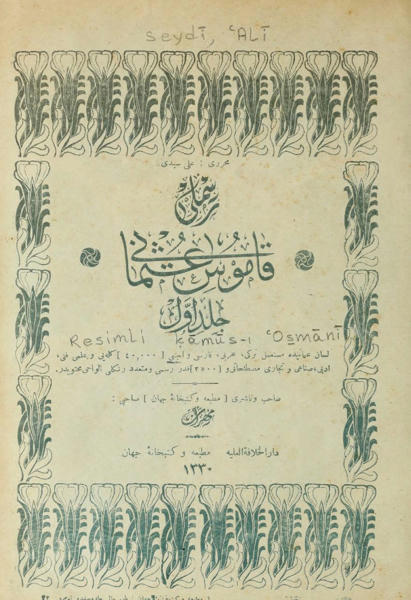 seydī, ʿAlī
محرری : علی سیدی
رسملی
قاموس عثمانی
جلد اول
Resimli Ḳāmūs-ı ʿOs̱mānī
لسان عثمانیده مستعمل ترکی، عربی، فارسی و اجنبی [ ٤٠,٠٠٠ ] کلمه‌یی و علمی، فنی،
ادبی، صناعی و تجاری مصطلحاتی و [ ٢٥٠٠ ] قدر رسمی و متعدد رنکلی الواحی محتویدر.
صاحب و ناشری [ مطبعه و کتبخانهٔ جهان ] صاحبی :
مهران
دار الخلافة العلیه مطبعه و کتبخانهٔ جهان
١٣٣٠